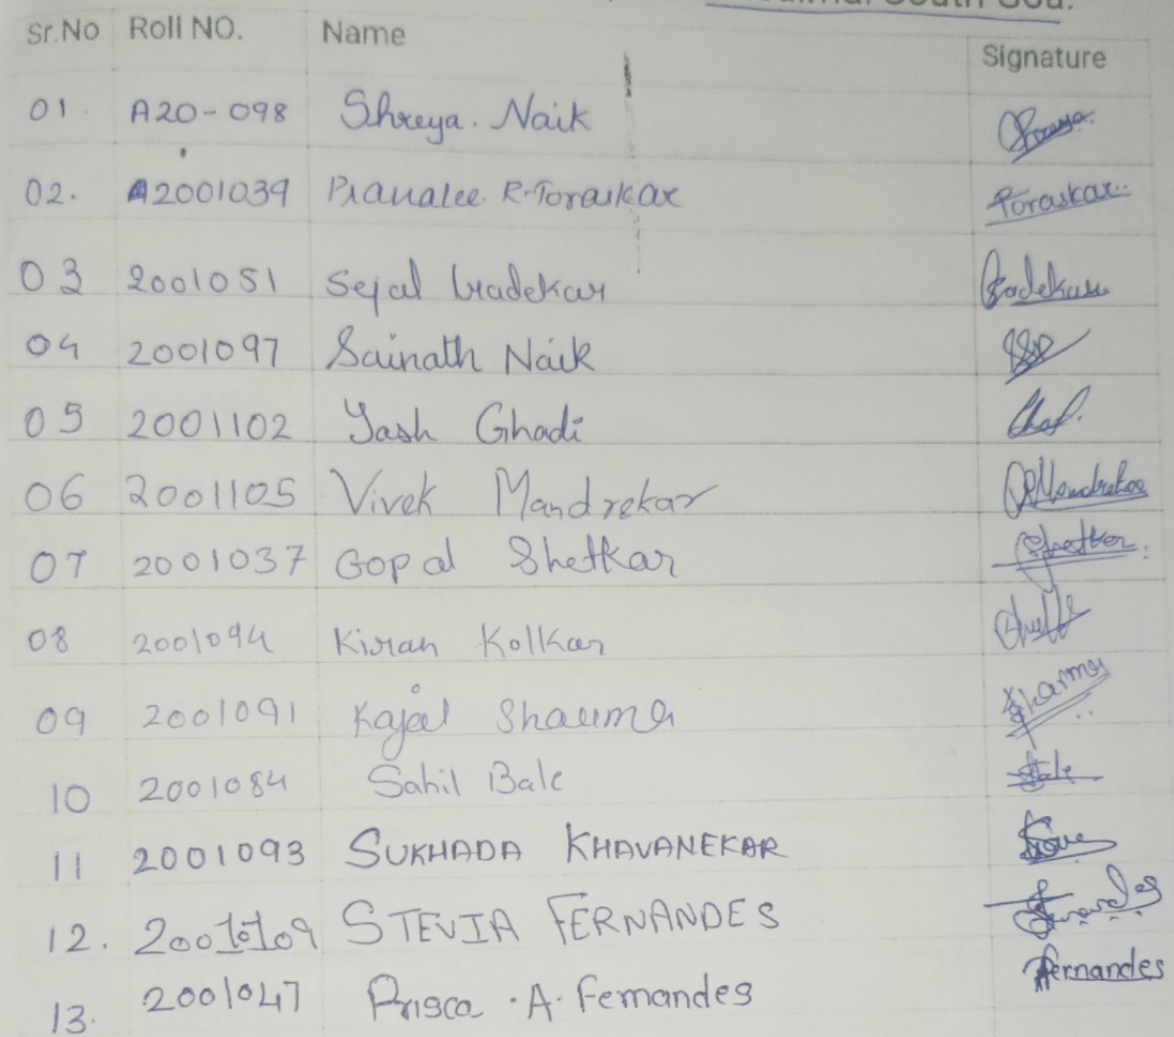 South Goa.
Sr.No Roll NO. Name Signature
01. A20-098 Shreya. Naik
02. A2001039 Pranalee. R. Toraskar Toraskar
03 2001051 Sejal Gadekar Gadekar
04 2001097 Sainath Naik
05 2001102 Yash Ghadi
06 2001105 Vivek Mandrekar Mandrekar
07 2001037 Gopal Shetkar Shetkar
08 2001094 Kiran Kolkar
09 2001091 Kajal Sharma Sharma
10 2001084 Sahil Bale Bale
11 2001093 SUKHADA KHAVANEKAR
12. 200 109 STEVIA FERNANDES Fernandes
13. 2001047 Prisca . A. Fernandes Fernandes